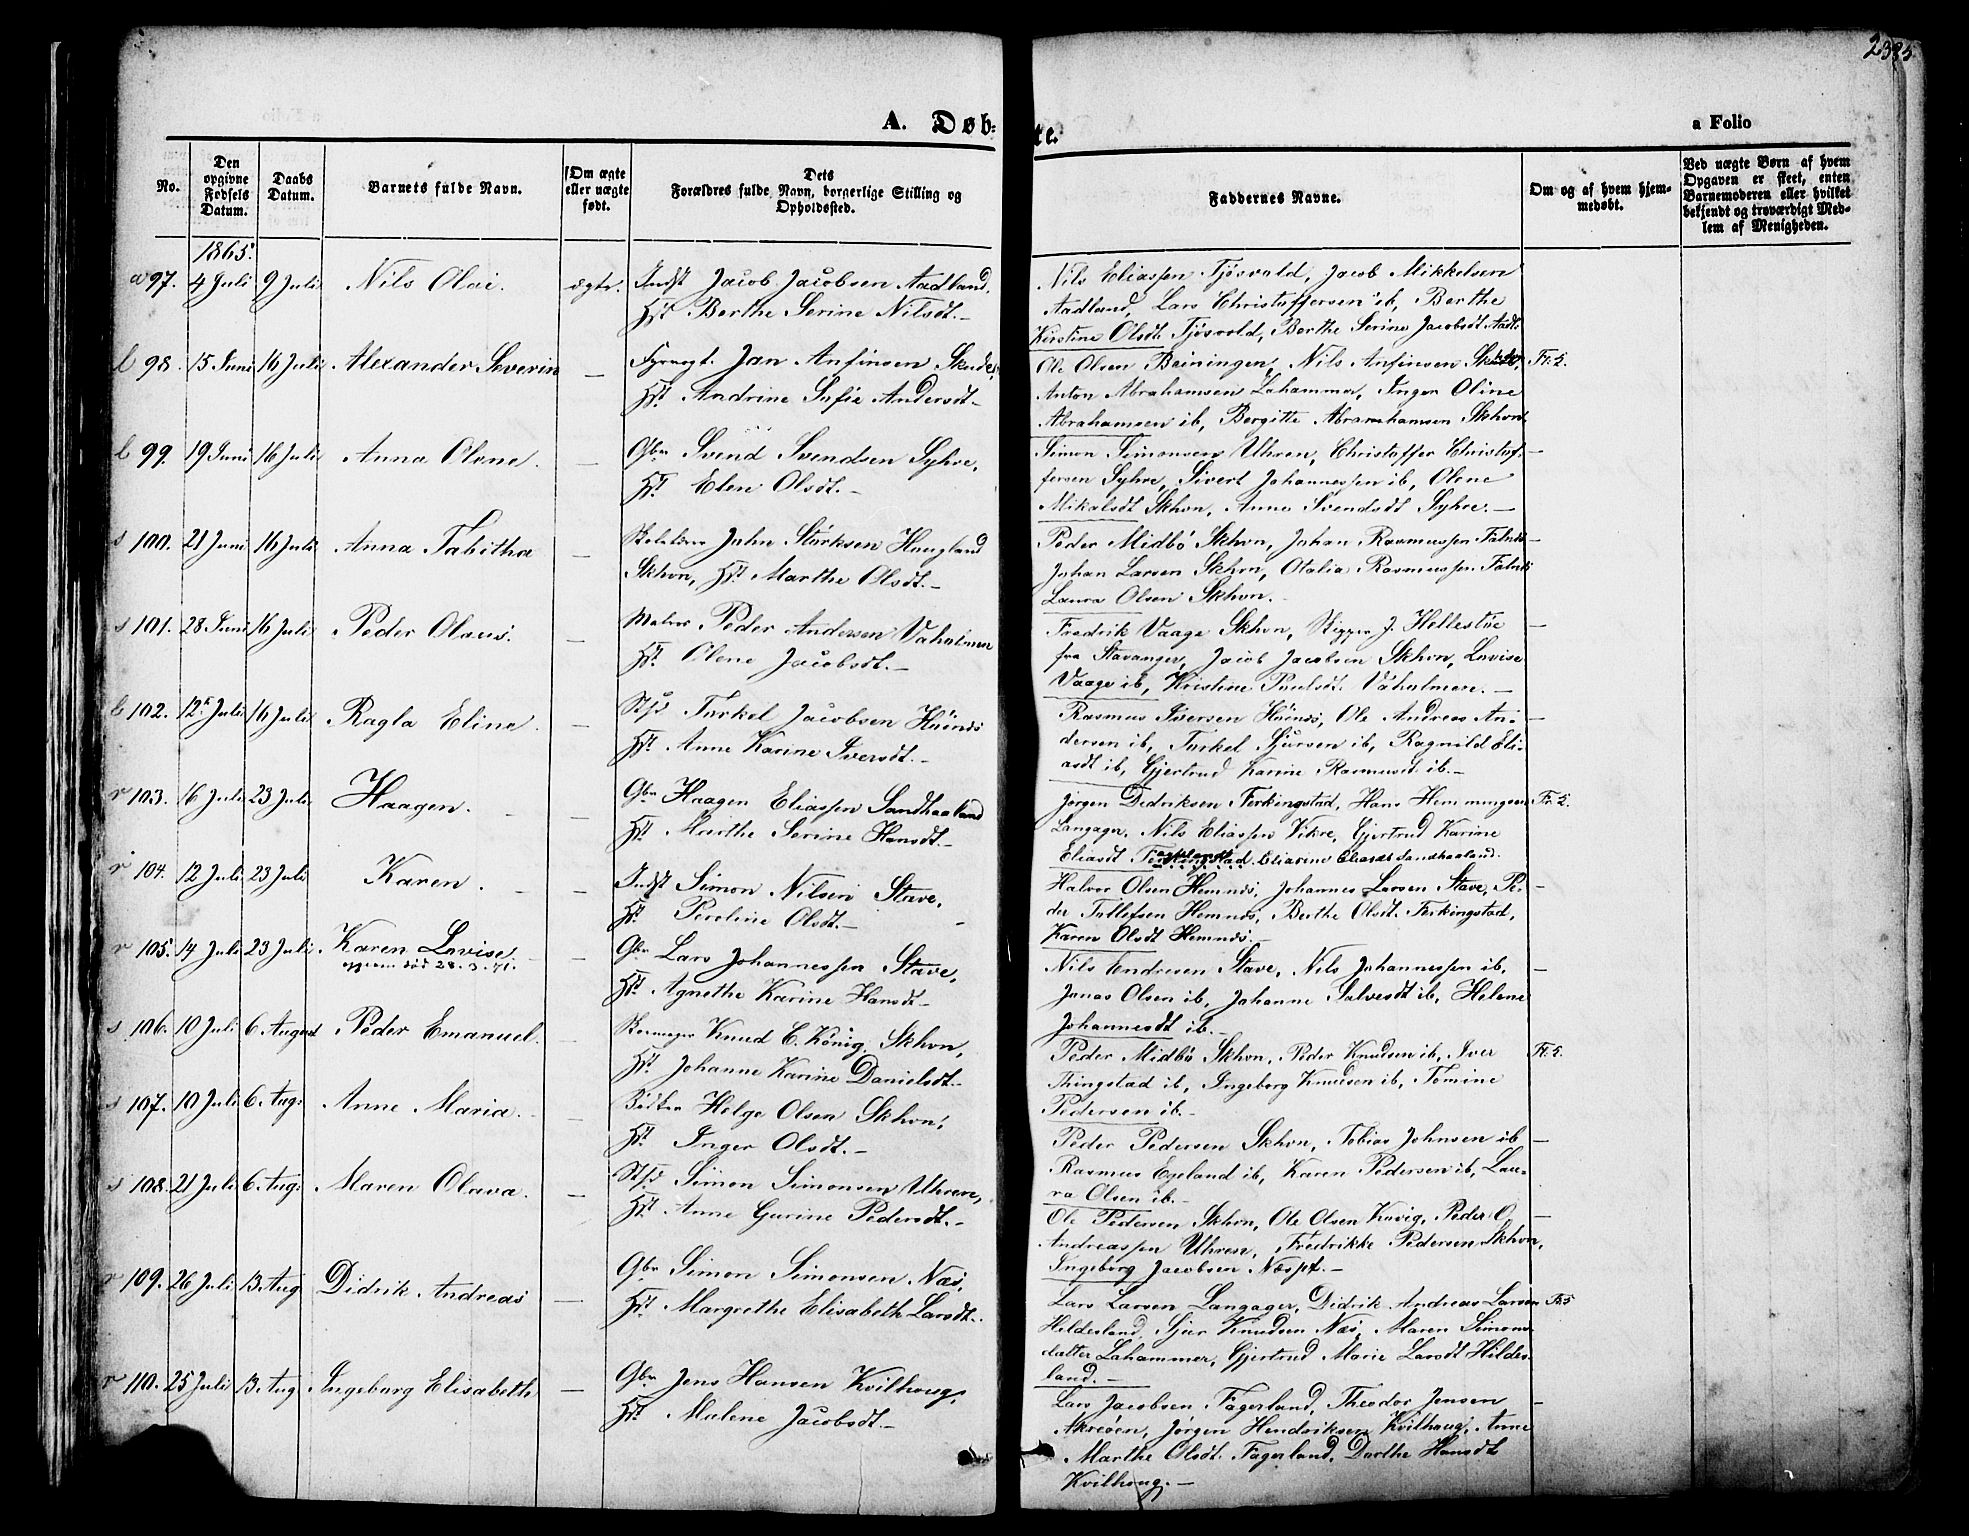 2335
A. Døb=
te.
a Folio
No.
Den opgivne Fødsels Datum.
Daabs Datum.
Barnets fulde Navn.
Om ægte eller uægte født.
Dets Forældres fulde Navn, borgerlige Stilling og Opholdssted.
Faddernes Navne.
Om og af hvem hjem-
medøbt.
Ved uægte Børn af hvem
Opgaven er skeet, enten
Barnemoderen eller hvilket
bekjendt og troværdigt Med-
lem af Menigheden.
1865.
a 97. 4 Juli 9 Juli Nils Olai ægte. Indst Jacob Jacobsen Aadland,
Hst Berthe Serine Nilsdt.-
Nils Eliassen Tjøsvold, Jacob Mikkelsen
Aadland, Lars Christoffersen ib, Berthe
Kirstine Olsdt Tjøsvold, Berthe Serine Jacobsdt Aadl.
b 98. 15 Juni 16 Juli Alexander Severin — Fyrvogt. Jan Anfinsen Skudes,
Hst Andrine Sofie Andersdt.-
Ole Olsen Beiningen, Nils Anfinsen Fr. 5.
Anton Abrahamsen Lahammer, Inger Oline
Abrahamsen ib, Bergitte Abrahamsen Skhvn
b 99. 19 Juni 16 Juli Anna Olene. — Gbr Svend Svendsen Syhre,
Hst. Elen Olsdt.-
Simon Simonsen Uhren, Christoffer Christof- —
fersen Syhre, Sivert Johannessen ib, Olene
Mikalsdt Skhvn, Anne Svendsdt Syhre.-
s 100. 21 Juni 16 Juli Anna Tabitha — Skolelærer John Størksen Hougland
Skhvn, Hst. Marthe Olsdt.-
Peder Midbö Skhvn, Johan Rasmussen Falnes —
Johan Larsen Skhvn, Otalia Rasmussen Falnes
Laura Olsen Skhvn.
s 101. 28 Juni 16 Juli Peder Olaus. — Maler Peder Andersen Vaholmen
Hst. Olene Jacobsdt.-
Fredrik Vaage Skhvn, Skipper J. Hellestøe —
fra Stavanger, Jacob Jacobsen Skhvn, Lovise
Vaage ib, Kristine Paulsdt. Vaholmen.-
b 102. 12 Juli 16 Juli Ragla Eline. — Torkel Jacobsen Höinæs
Hst. Anne Karine Iversdt.-
Rasmus Iversen Höinæs, Ole Andreas An- —
dersen ib, Torkel Sjursen ib, Ragnild Eli-
asdt ib, Gjertrud Karine Rasmusdt ib.-
r 103. 16 Juli 23 Juli Haagen. — Gbr Haagen Eliassen Sandhaaland
Hst. Marthe Serine Hansdt.-
Jørgen Didriksen Ferkingstad, Hans Hemmingsen Fr. 5.
Langager, Nils Eliassen Vikre, Gjertrud Karine
Eliasdt Eliasdt Sandhaaland.
r 104. 12 Juli 23 Juli Karen. — Indst Simon Nilsen Stave,
Hst. Peroline Olsdt.-
Halvor Olsen Hemnæs, Johannes Larsen Stave, Pe- —
der Tollefsen Hemnæs, Berthe Olsdt. Ferkingstad,
Karen Olsdt Hemnæs.
r 105. 14 Juli 23 Juli. Karen Lovise. — Gbr Lars Johannessen Stave,
død 28.3.41.
Hst. Agnethe Karine Hansdt.-
Nils Endresen Stave, Nils Johannessen ib, —
Jonas Olsen ib, Johanne Salvesdt ib, Helene
Johannesdt ib.-
s 106. 10 Juli 6 August Peder Emanuel. — Knud C. König, Skhvn,
Hst. Johanne Karine Danielsdt.-
Peder Midbö Skhvn, Peder Knudsen ib, Iver Fr. 5.
Thingstad ib, Ingeborg Knudsen ib, Tomine
Pedersen ib.-
s 107. 10 Juli 6 Aug: Anne Maria. — Bödker Helge Olsen Skhvn,
Hst. Inger Olsdt.-
Peder Pedersen Skhvn, Tobias Johnsen ib —
Rasmus Egeland ib, Karen Pedersen ib, Lau-
ra Olsen ib.-
s 108. 21 Juli 6 Aug: Maren Olava. — Simon Simonsen Uhren,
Hst. Anne Gurine Pedersdt.-
Ole Pedersen Skhvn, Ole Olsen Kavig, Peder O. —
Andreassen Uhren, Fredrikke Pedersen Skhvn,
Ingeborg Jacobsen Næspt.-
r 109. 26 Juli 13. Aug Didrik Andreas — Gbr Simon Simonsen Næs,
Hst. Margrethe Elisabeth Larsdt.
Lars Larsen Langager, Didrik Andreas Larsen Fr. 5
Hildesland, Sjur Knudsen Næs, Maren Simons-
datter Lahammer, Gjertrud Marie Larsdt Hildes-
land.-
r 110. 25 Juli 13. Aug Ingeborg Elisabeth — Gbr Jens Hansen Kvilhoug,
Hst. Malene Jacobsdt.-
Lars Jacobsen Fagerland, Theodor Jensen —
Akreøen, Jørgen Hendriksen Kvilhoug, Anne
Marthe Olsdt. Fagerland, Dorthe Hansdt
Kvilhoug.-